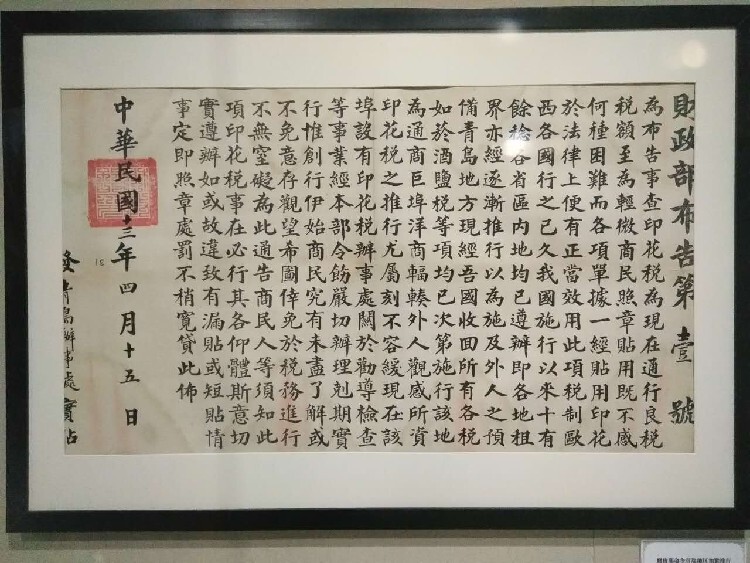 財政部布告第壹號
為布告事查印花税為現在通行良税
税額至為輕微商民照章貼用既不感
何種困難而各項單據一經貼用印花
於法律上便有正當效用此項税制歐
西各國行之已久我國施行以來十有
餘稔各省區内地均已遵辦即各地租
界亦經逐漸推行以為施及外人之預
備青島地方現經吾國收回所有各税
如菸酒鹽税等項均已次第施行該地
為通商巨埠洋商輻輳外人觀感所資
印花税之推行尤屬刻不容緩現在該
埠設有印花税辦事處關於勸導檢查
等事業經本部令飭嚴切辦理剋期實
行惟創行伊始商民究有未盡了解或
不免意存觀望希圖倖免於税務進行
不無窒礙為此通告商民人等須知此
項印花税事在必行其各仰體斯意切
實遵辦如或故違致有漏貼或短貼情
事定即照章處罰不稍寬貸此佈
中華民國十三年四月十五日
發青島辦事處實貼